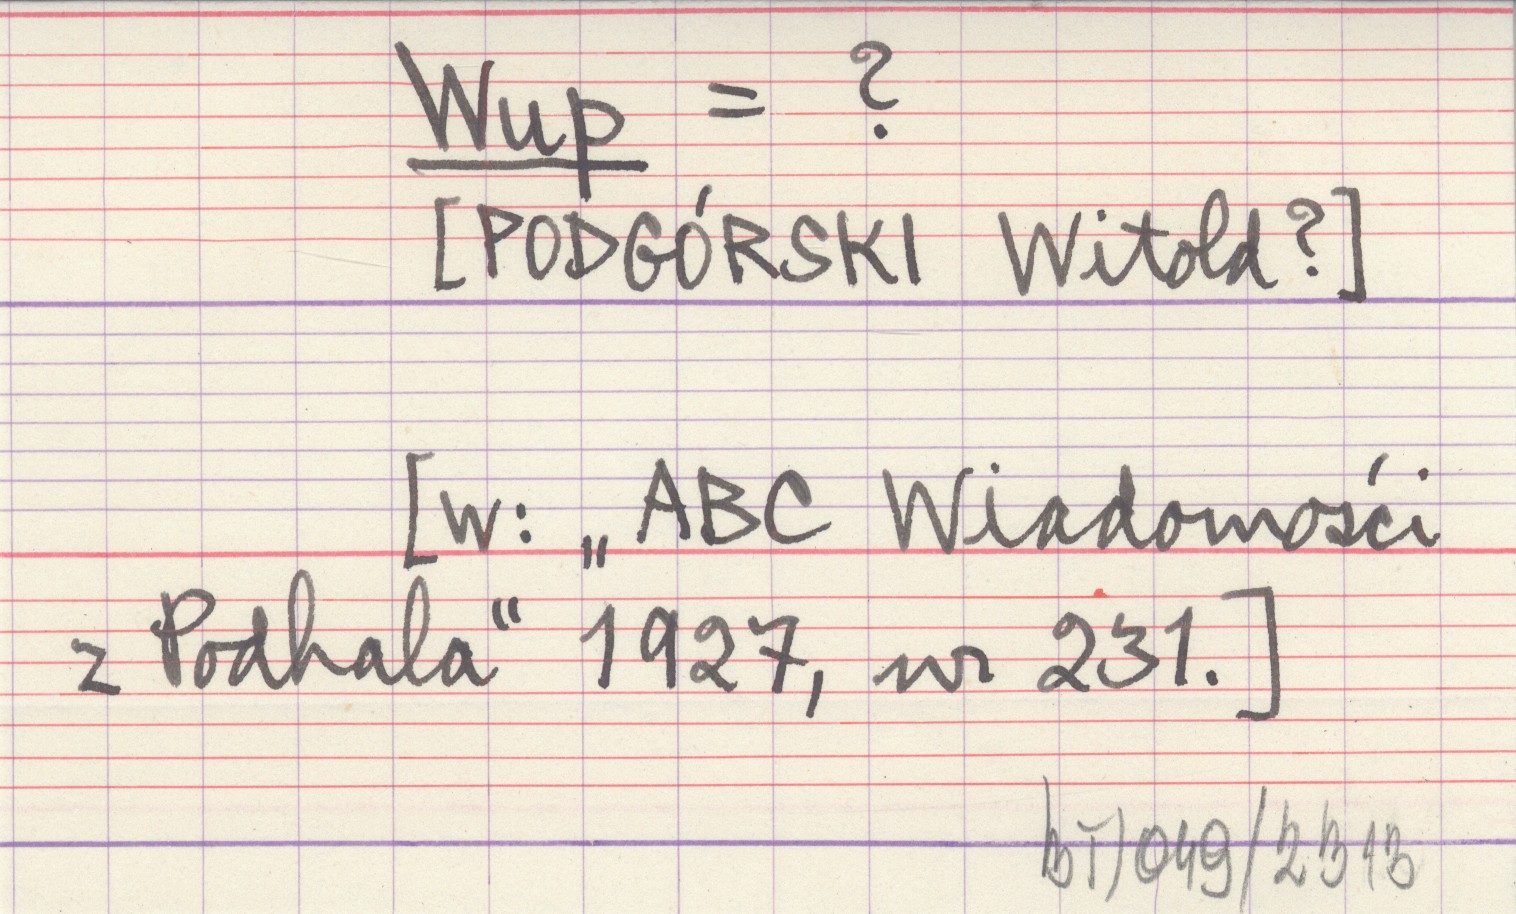 Wup = ?
[PODGÓRSKI Witold?]
[w: „ABC Wiadomości
z Podhala" 1927, nr 231.]
049/2313